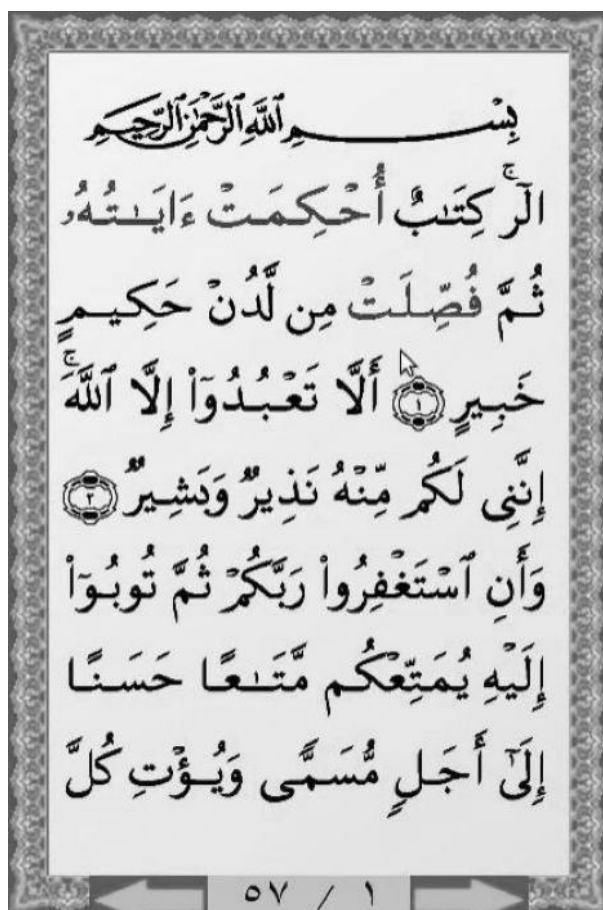 بِسْمِ ٱللَّهِ ٱلرَّحْمَٰنِ ٱلرَّحِيمِ
الٓر ۚ كِتَٰبٌ أُحْكِمَتْ ءَايَٰتُهُۥ
ثُمَّ فُصِّلَتْ مِن لَّدُنْ حَكِيمٍ
خَبِيرٍ ١ أَلَّا تَعْبُدُوٓا۟ إِلَّا ٱللَّهَ ۚ
إِنَّنِى لَكُم مِّنْهُ نَذِيرٌ وَبَشِيرٌ ٢
وَأَنِ ٱسْتَغْفِرُوا۟ رَبَّكُمْ ثُمَّ تُوبُوٓا۟
إِلَيْهِ يُمَتِّعْكُم مَّتَٰعًا حَسَنًا
إِلَىٰٓ أَجَلٍ مُّسَمًّى وَيُؤْتِ كُلَّ
٥٧ / ١